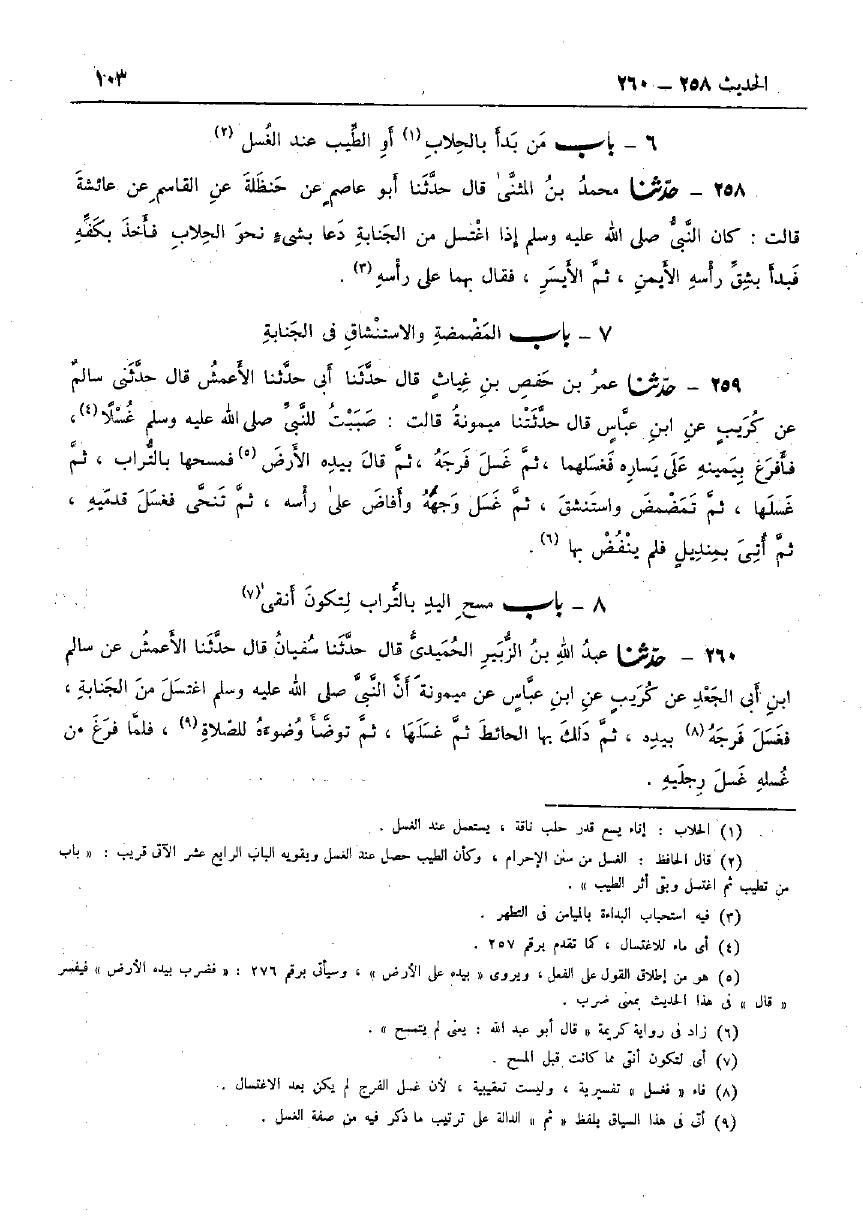 الحديث ٢٥٨ – ٢٦٠ ١٠٣
٦ – باب مَن بَدأَ بالحِلابِ (١) أَوِ الطِّيب عند الغُسل (٢)
٢٥٨ – حدّثنا محمدُ بنُ المثنَّىٰ قال حدَّثَنا أبو عاصمٍ عن حَنظَلةَ عنِ القاسمِ عن عائشةَ
قالت : كان النَّبىُّ صلى الله عليه وسلم إذا اغْتسل من الجَنابةِ دَعا بشىءٍ نحوَ الحِلابِ فأَخذَ بكَفِّهِ
فَبدأَ بشِقِّ رأسهِ الأَيمنِ ، ثمَّ الأَيسَرِ ، فقال بهما على رأسهِ (٣) .
٧ – باب المَضْمضةِ والاستنْشاقِ فى الجَنابةِ
٢٥٩ – حدّثنا عمرُ بن حَفصِ بنِ غِياثٍ قال حدَّثَنا أبى حدَّثنا الأَعمشُ قال حدَّثَنى سالمٌ
عن كُرَيبٍ عنِ ابنِ عبَّاسٍ قال حدَّثَتْنا ميمونةُ قالت : صَبَبْتُ للنَّبىِّ صلى الله عليه وسلم غُسْلًا (٤) ،
فأَفرَغَ بِيَمينهِ عَلَى يَسارِه فغَسَلهما ، ثمَّ غَسلَ فَرجَهُ ، ثمَّ قالَ بيدِه الأَرضَ (٥) فمسحها بالتُّراب ، ثمَّ
غَسلَها ، ثمَّ تَمَضْمضَ واستَنشقَ ، ثمَّ غَسَل وَجهَهُ وأَفاضَ علىٰ رأسه ، ثمَّ تَنحَّى فغسَلَ قدمَيهِ ،
ثمَّ أُتِىَ بمِندِيلٍ فلم ينْفُضْ بها (٦) .
٨ – باب مسحِ اليدِ بالتُّراب لِتكونَ أَنقىٰ (٧)
٢٦٠ – حدّثنا عبدُ اللهِ بنُ الزُّبَيرِ الحُمَيدىُّ قال حدَّثَنا سُفيانُ قال حدَّثَنا الأَعمشُ عن سالمِ
ابنِ أبى الجَعْدِ عن كُرَيبٍ عنِ ابنِ عبَّاسٍ عن ميمونةَ أَنَّ النَّبىَّ صلى الله عليه وسلم اغتسَلَ منَ الجَنابةِ ،
فغَسَلَ فَرجَهُ (٨) بيدِه ، ثمَّ دَلكَ بها الحائطَ ثمَّ غسَلَهَا ، ثمَّ توضَّأَ وُضوءَهُ للصَّلاةِ (٩) ، فلمَّا فرَغَ من
غُسلهِ غَسلَ رِجلَيهِ .
(١) الحلاب : إناء يسع قدر حلب ناقة ، يستعمل عند الغسل .
(٢) قال الحافظ : الغسل من سنن الإحرام ، وكأن الطيب حصل عند الغسل ويقويه الباب الرابع عشر الآتى قريب : « باب
من تطيب ثم اغتسل وبقى أثر الطيب » .
(٣) فيه استحباب البداءة بالميامن فى التطهر .
(٤) أى ماء للاغتسال ، كما تقدم برقم ٢٥٧ .
(٥) هو من إطلاق القول على الفعل ، ويروى « بيده على الأرض » ، وسيأتى برقم ٢٧٦ : « فضرب بيده الأرض » فيفسر
« قال » فى هذا الحديث بمعنى ضرب .
(٦) زاد فى رواية كريمة « قال أبو عبد الله : يعنى لم يتمسح » .
(٧) أى لتكون أنقى مما كانت قبل المسح .
(٨) فاء « فغسل » تفسيرية ، وليست تعقيبية ، لأن غسل الفرج لم يكن بعد الاغتسال .
(٩) أتى فى هذا السياق بلفظ « ثم » الدالة على ترتيب ما ذكر فيه من صفة الغسل .